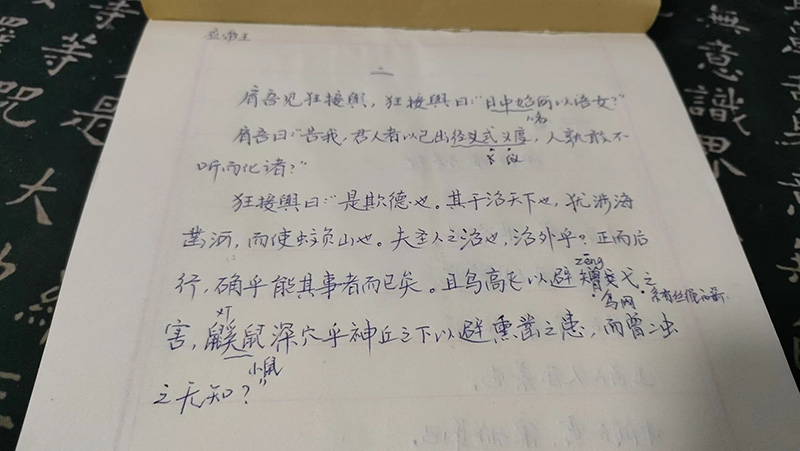 应帝王
二
肩吾见狂接舆，狂接舆曰："日中始何以语女？"
肩吾曰："告我，君人者以己出经义式义度，人孰敢不
仪
听而化诸？"
狂接舆曰："是欺德也。其于治天下也，犹涉海
凿河，而使蚊负山也。夫圣人之治也，治外乎？正而后
行，确乎能其事者而已矣。且鸟高飞以避矰弋之
zēng
鸟网
害，鼷鼠深穴乎神丘之下以避熏凿之患，而曾二虫
小鼠
之无知？"
無意識界
是大